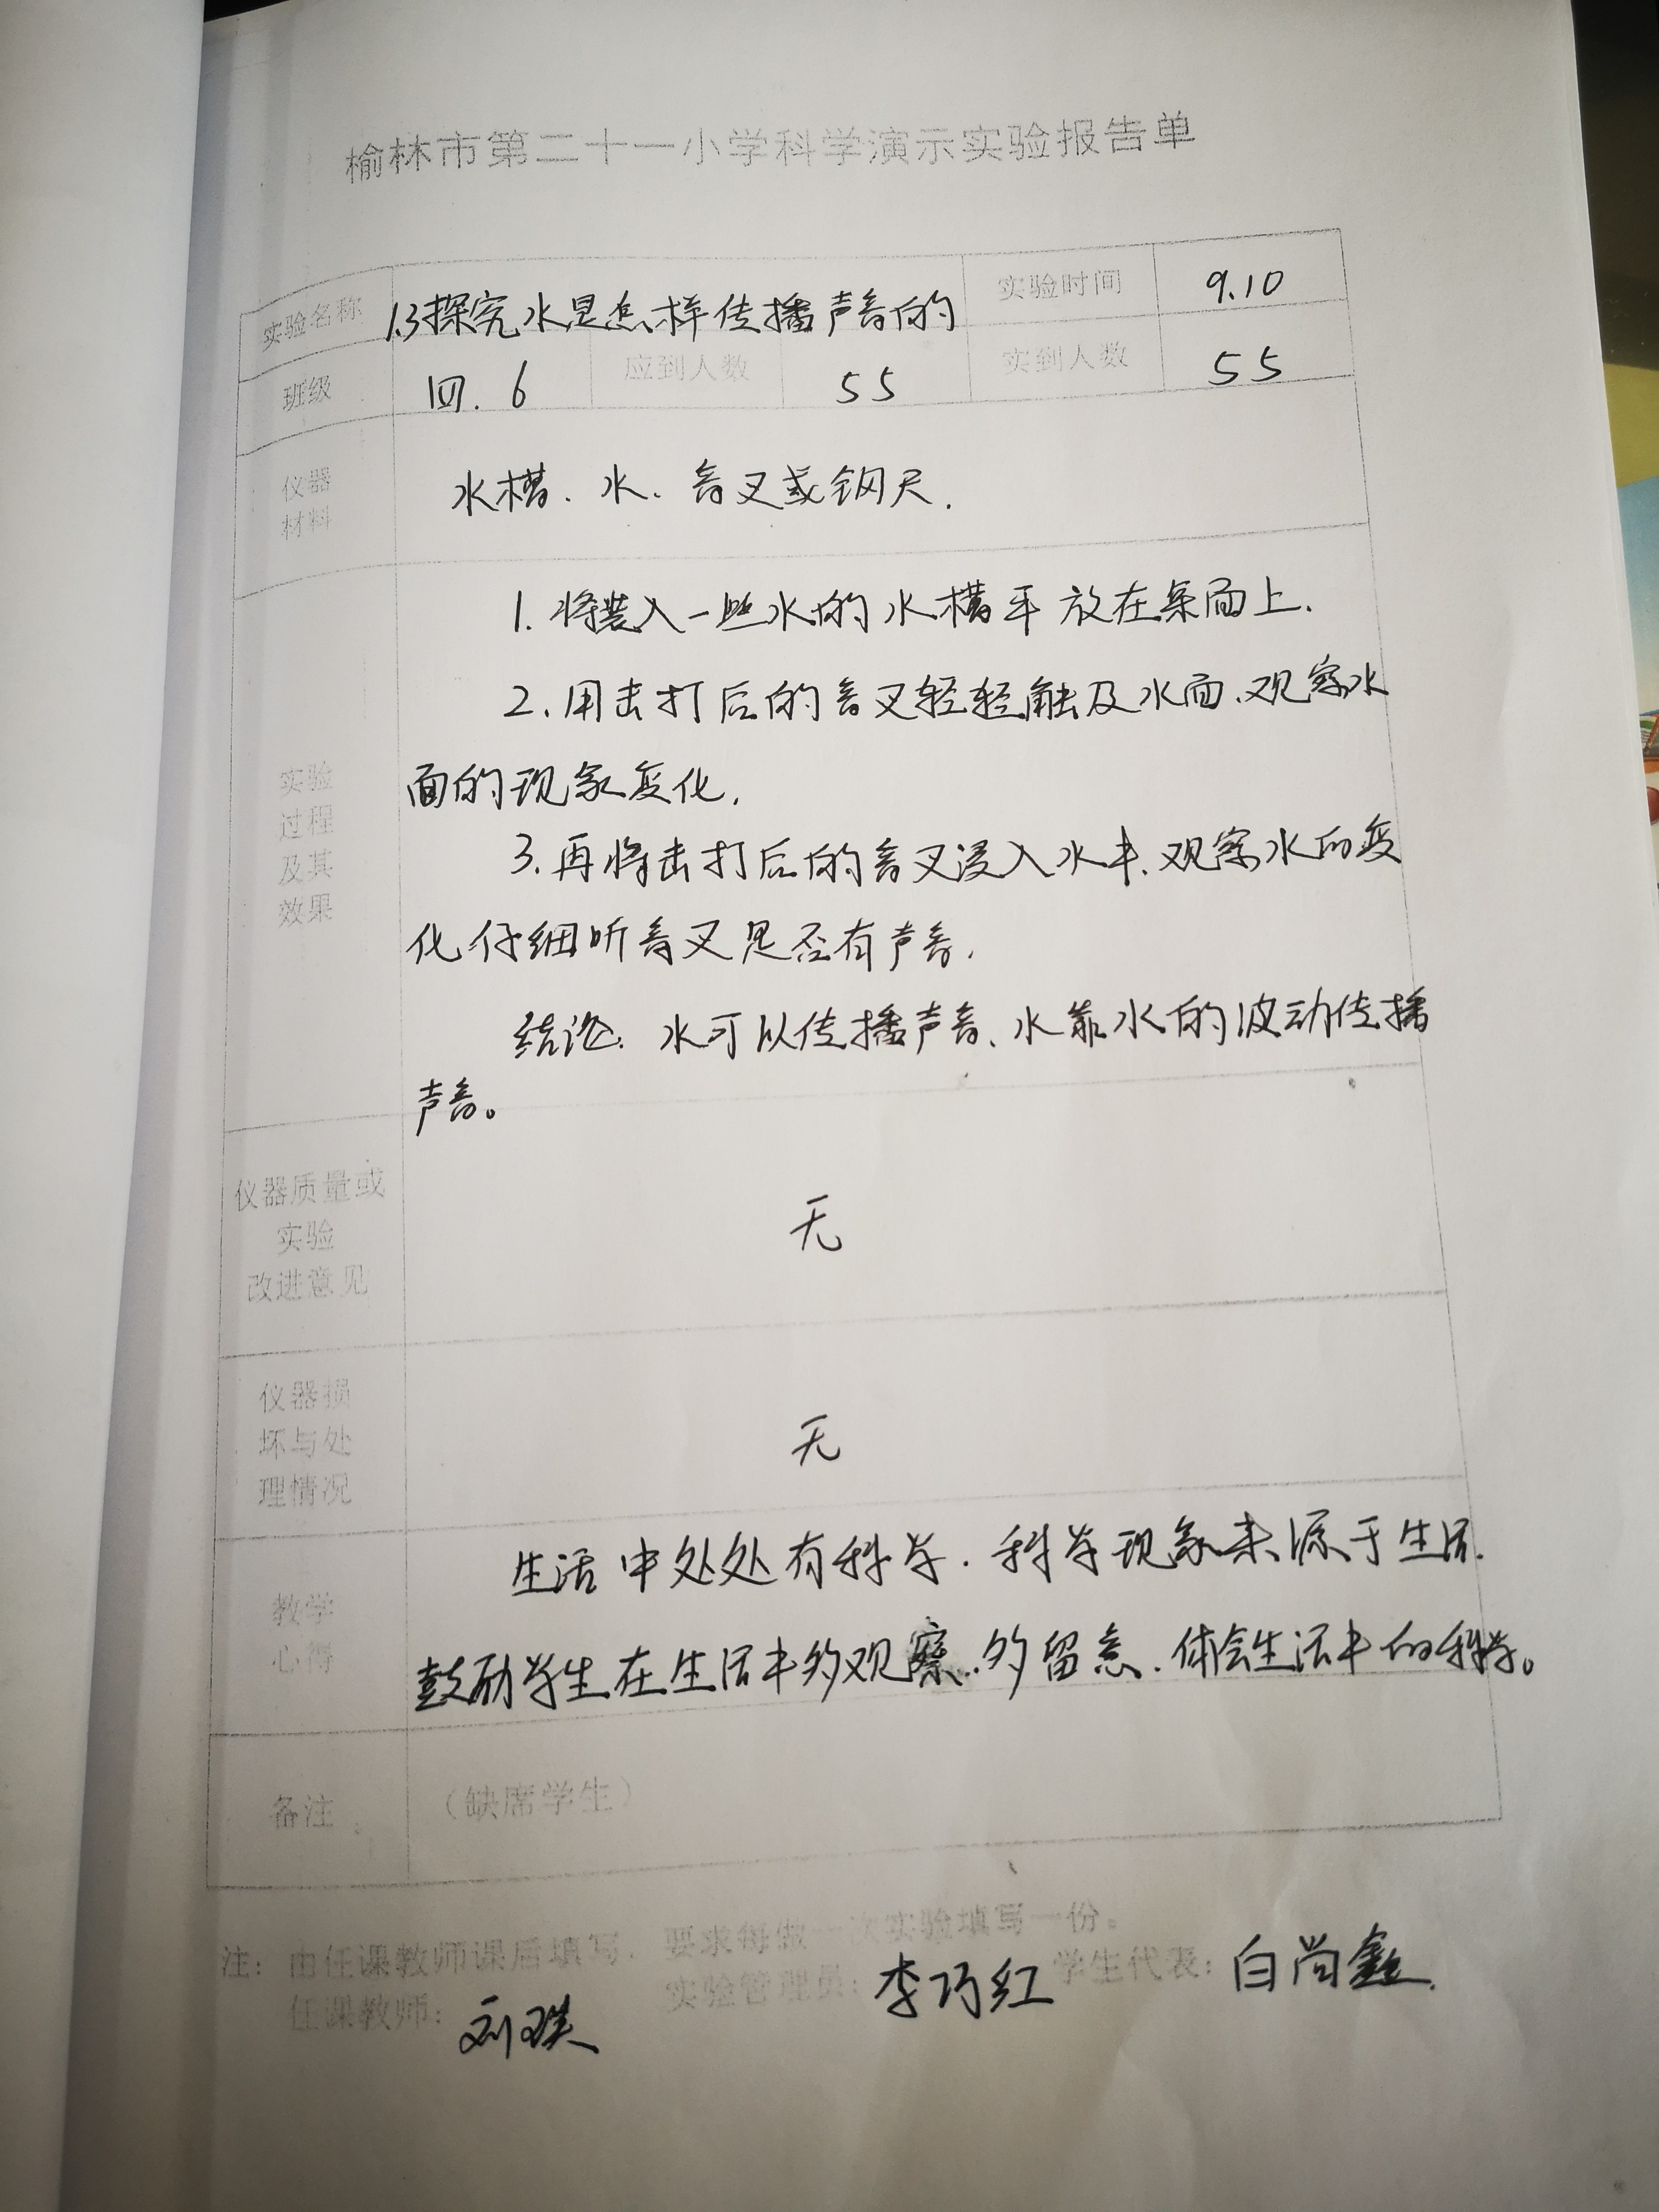 榆林市第二十一小学科学演示实验报告单
实验名称 1.3探究水是怎样传播声音的 实验时间 9.10
班级 四.6 应到人数 55 实到人数 55
仪器
材料
水槽、水、音叉或钢尺.
实验
过程
及其
效果
1.将装入一些水的水槽平放在桌面上.
2.用击打后的音叉轻轻触及水面、观察水
面的现象变化.
3.再将击打后的音叉浸入水中、观察水的变
化仔细听音叉是否有声音.
结论: 水可以传播声音、水靠水的波动传播
声音。
仪器质量或
实验
改进意见
无
仪器损
坏与处
理情况
无
教学
心得
生活中处处有科学.科学现象来源于生活.
鼓励学生在生活中多观察..多留意.体会生活中的科学。
备注 （缺席学生）
注：由任课教师课后填写，要求每做一次实验填写一份。
任课教师: 实验管理员: 李巧红 学生代表: 白尚鑫